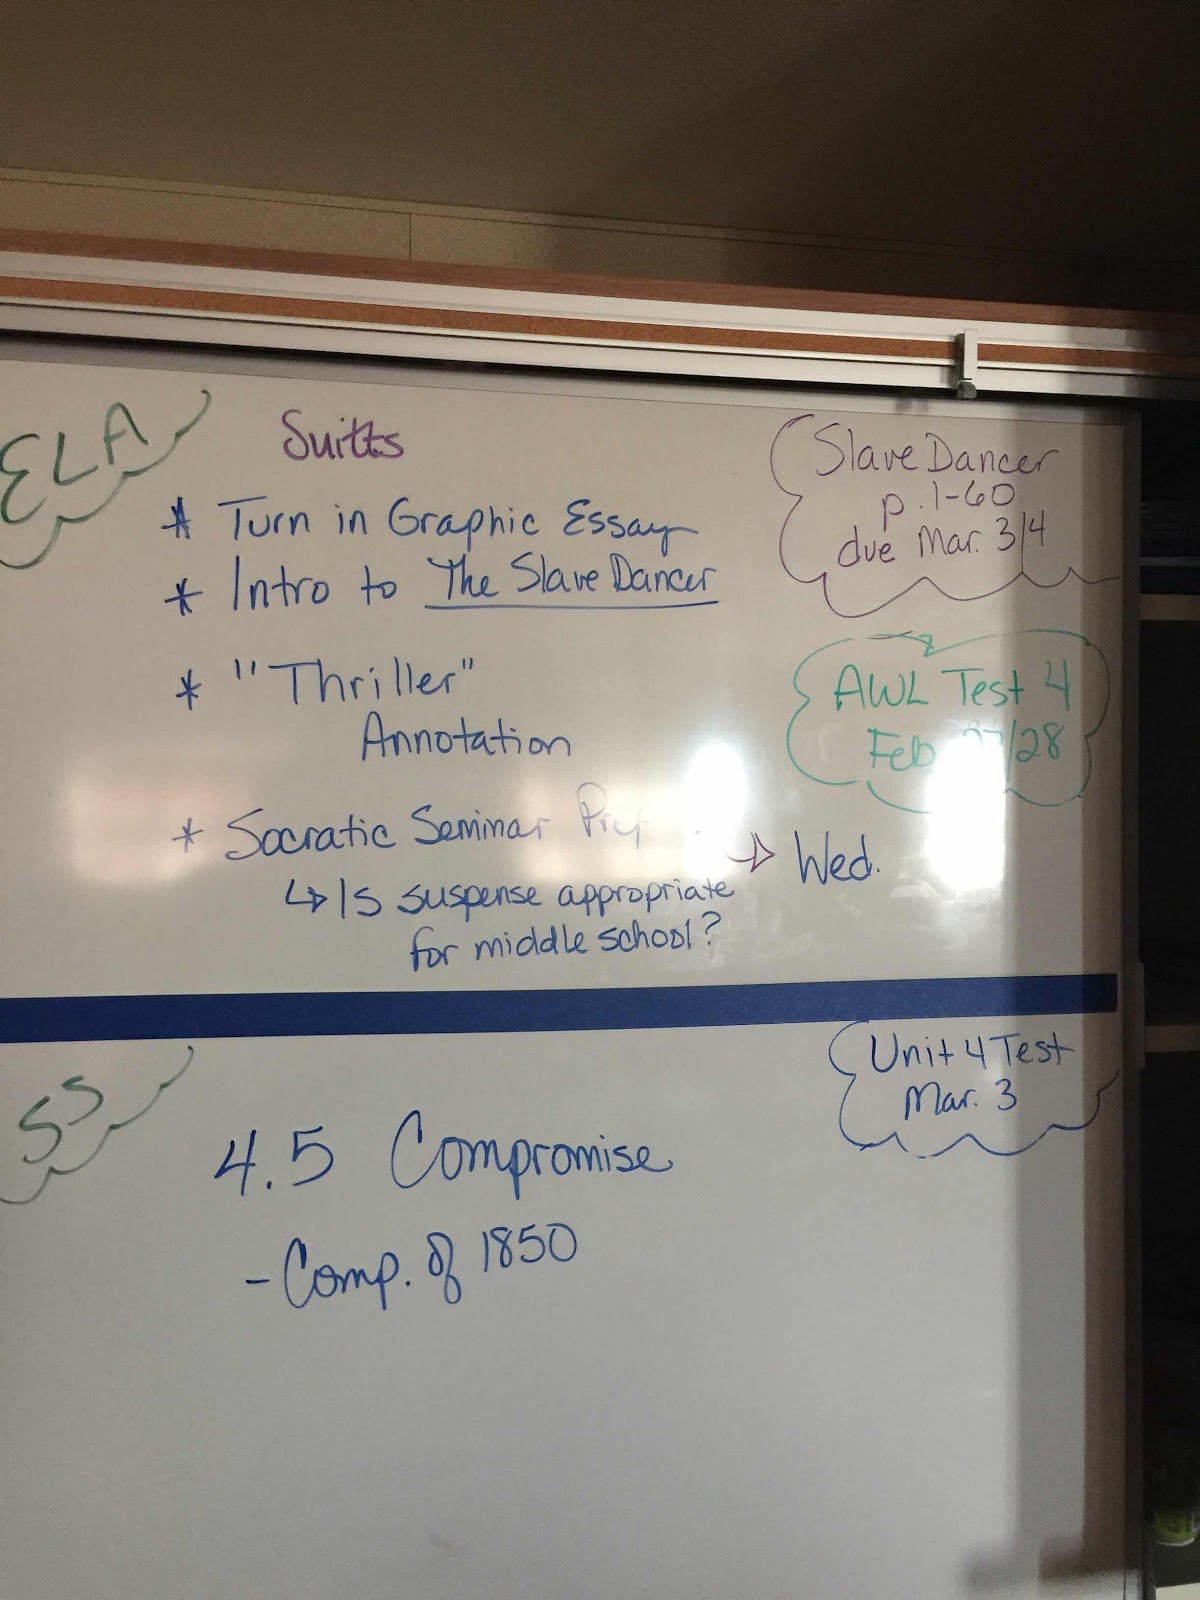 ELA
Suitts
* Turn in Graphic Essay
* Intro to The Slave Dancer
* "Thriller"
Annotation
* Socratic Seminar
↳ Is suspense appropriate
for middle school?
→ Wed.
Slave Dancer
p. 1-60
due Mar. 3/4
AWL Test 4
Feb /28
SS
4.5 Compromise
- Comp. of 1850
Unit 4 Test
Mar. 3